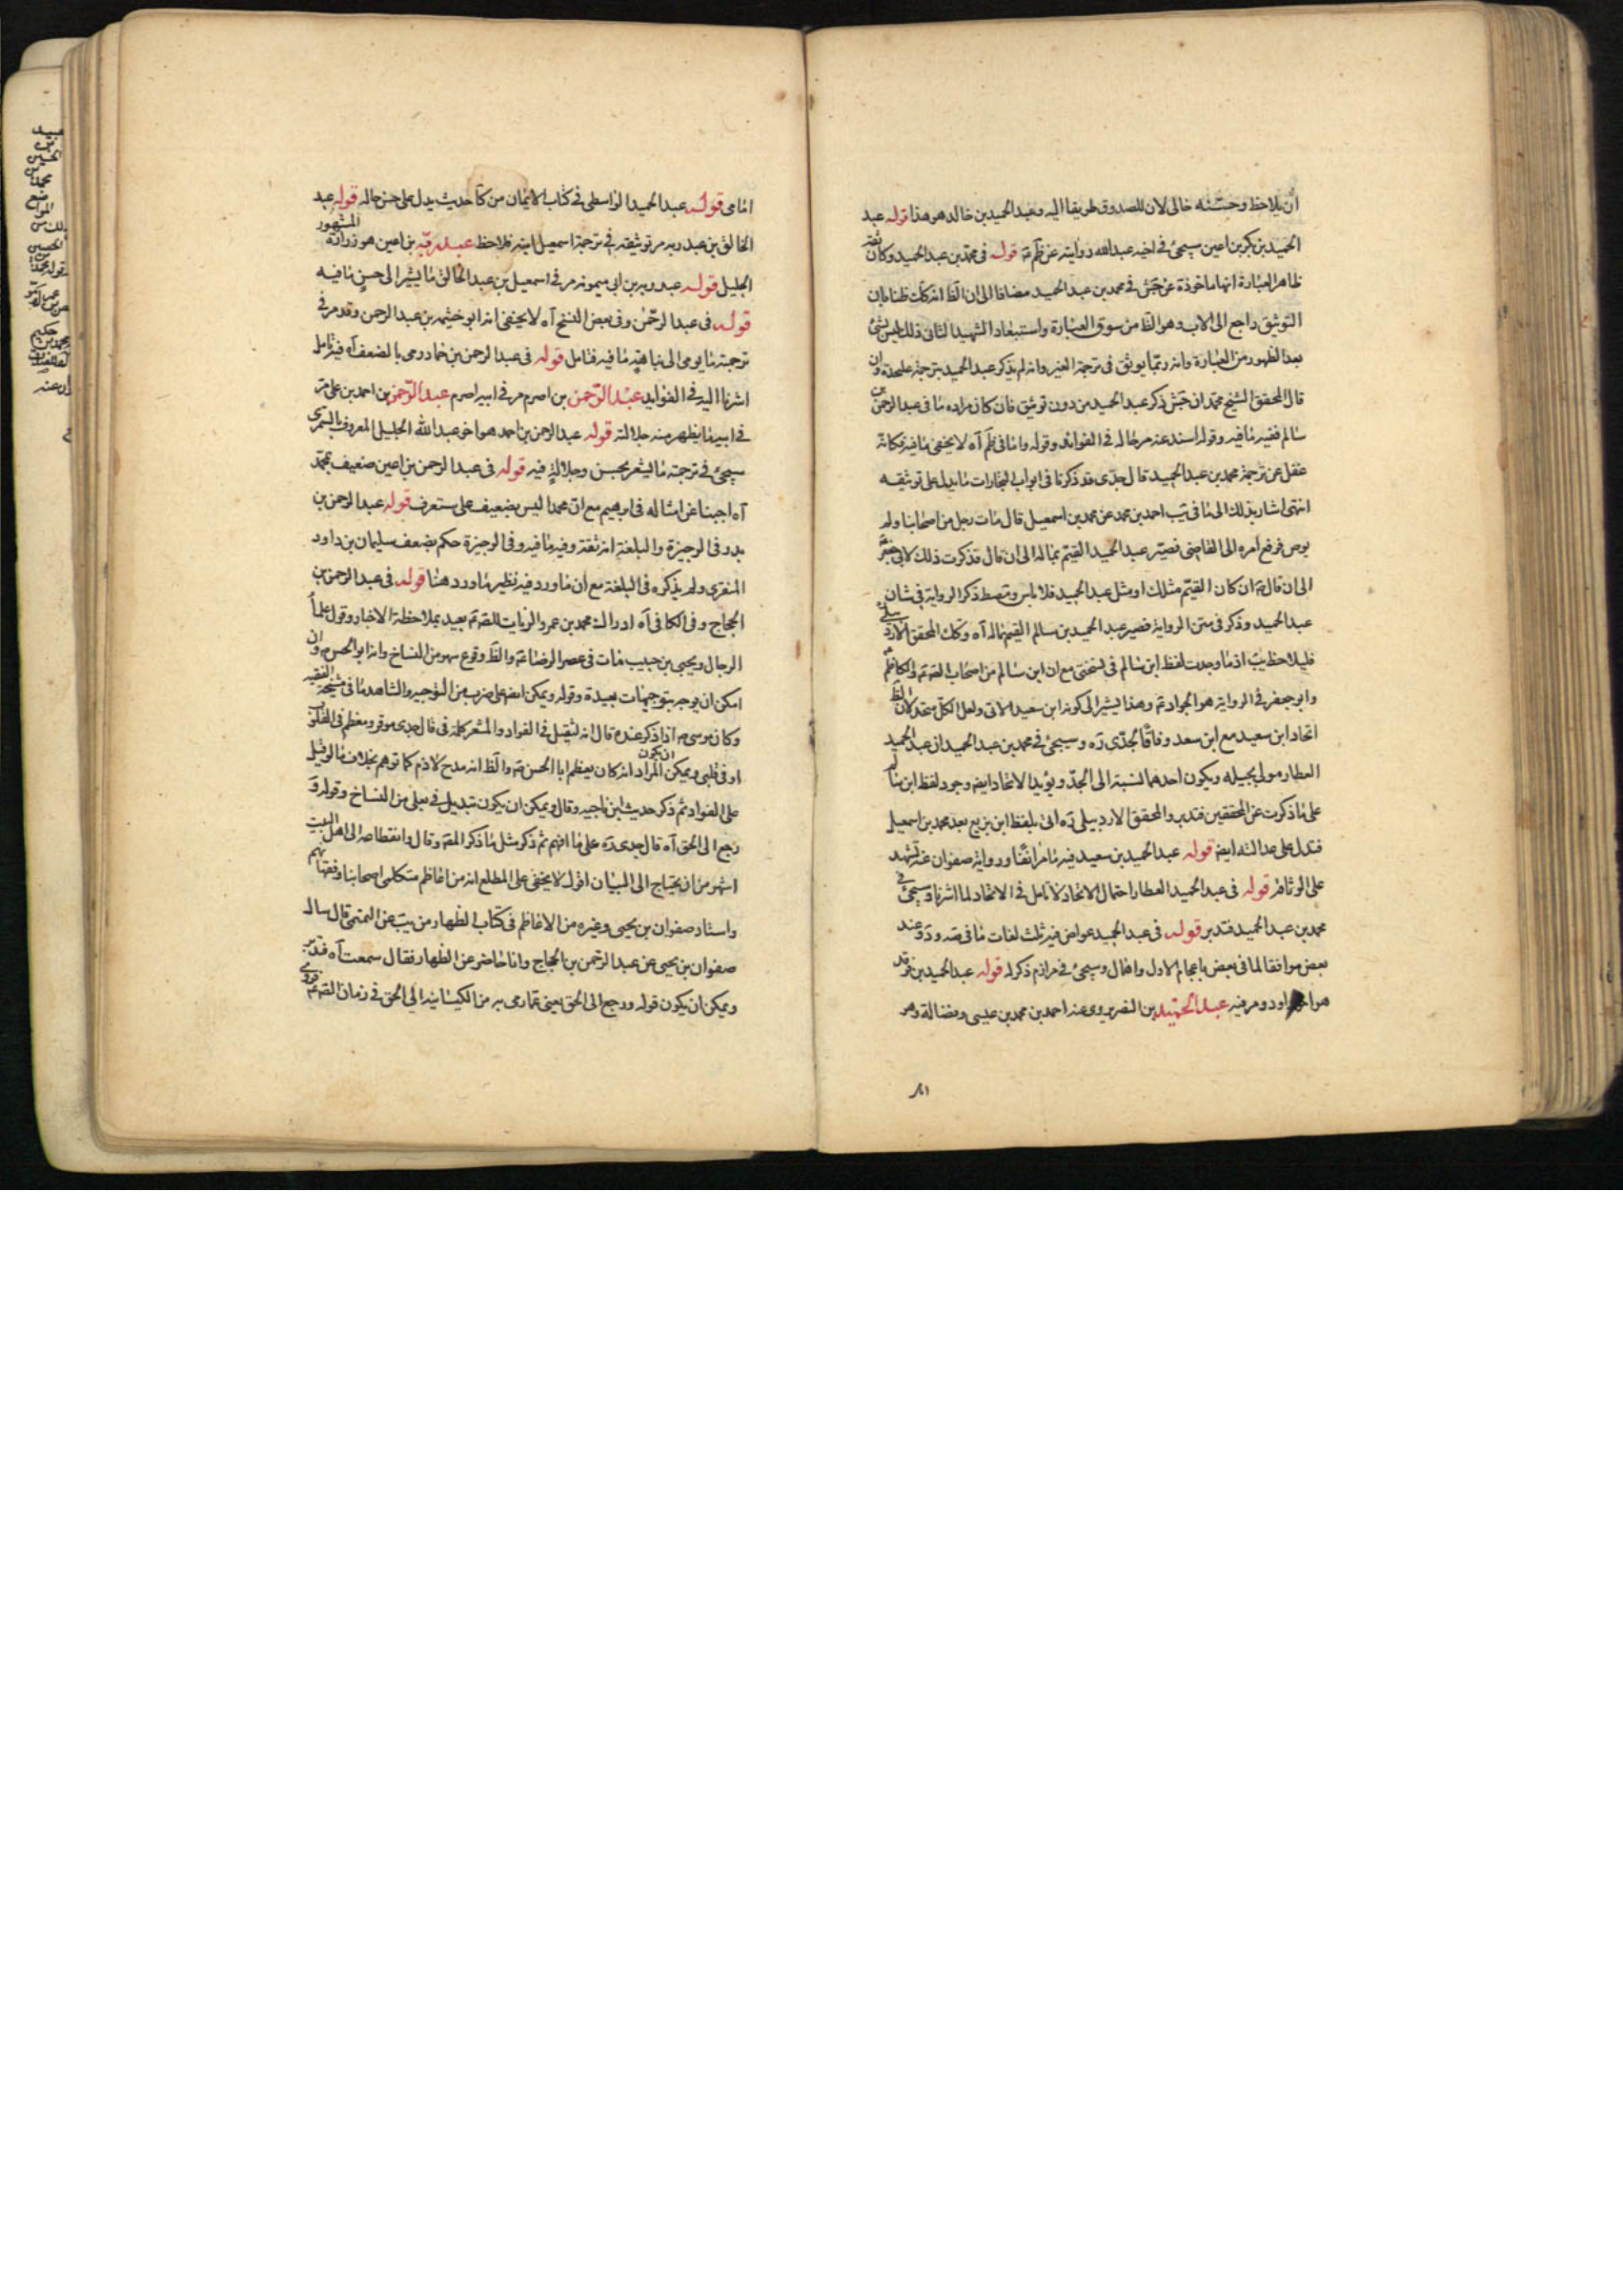 أن يلاحظ وحسّنه خالى لان للصدوق طريقا اليه وعبد الحميد بن خالد هو هذا قوله عبد
الحميد بن بكر بن اعين سيجئ فى اخيه عبد الله روايته عن ظم قوله فى محمد بن عبد الحميد وكان ثقة
ظاهر العبارة انها ماخوذة عن جش فى محمد بن عبد الحميد مضافا الى ان الظ انه كك ظنا بان
التوثيق راجع الى الاب وهو الظ من سوق العبارة واستبعاد الشهيد الثانى ذلك ليس بشئ
بعد الظهور من العبارة وانه ربما يوثق فى ترجمة الغير وانه لم يذكر عبد الحميد بترجمة عليحدة وان
قال المحقق الشيخ محمد ان جش ذكر عبد الحميد من دون توثيق فان كان مراده ما فى عبد الرحمن بن
سالم ففيه ما فيه وقوله اسند عنه مر حاله فى الفوائد وقوله واما فى ظم آه لا يخفى ما فيه فكانه
غفل عن ترجمة محمد بن عبد الحميد قال جدّى قد ذكرنا فى ابواب التجارات ما يدل على توثيقه
انتهى اشار بذلك الى ما فى يب احمد بن محمد عن محمد بن اسمعيل قال مات رجل من اصحابنا ولم
يوص فرفع امره الى القاضى فصيّر عبد الحميد القيّم بماله الى ان قال فذكرت ذلك لابى جعفر
الى ان قال ان كان القيّم مثلك او مثل عبد الحميد فلا باس ذكر الرواية فى شان
عبد الحميد وذكر فى متن الرواية فصير عبد الحميد بن سالم القيم بماله آه وكك المحقق الاردبيلى
فليلاحظ يب اذ ما وجدت لفظ ابن سالم فى نسختى مع ان ابن سالم من اصحاب الق والكاظم
وابو جعفر فى الرواية هو الجواد وهذا يشير الى كونه ابن سعيد الاتى ولعل الكل متحد لان الظ
اتحاد ابن سعيد مع ابن سعد وفاقا لجدّى ره وسيجئ فى محمد بن عبد الحميد ان عبد الحميد
العطار مولى بجيله ويكون احدهما لنسبة الى الجدّ ويؤيد الاتحاد ايضا وجود لفظ ابن سالم
على ما ذكرت عن المحققين فتدبر والمحقق الاردبيلى ره اتى بلفظ ابن بزيع بعد محمد بن اسمعيل
فتدل على عدالته ايضا قوله عبد الحميد بن سعيد فيه ما مر انفا ورواية صفوان عنه تشهد
على الوثاقة قوله فى عبد الحميد العطار احتمال الاتحاد لا تامل فى الاتحاد لما اشرنا وسيجئ فى
محمد بن عبد الحميد فتدبر قوله فى عبد الحميد عواض فيه ثلث لغات ما فى صه ود وعند
بعض موافقا لما فى بعض باعجام الاول واهمال وسيجئ فى مرازم ذكر له قوله عبد الحميد بن فرقد
هو اخو داود ومر فيه عبد الحميد بن النضر يروى عنه احمد بن محمد بن عيسى وفضالة وهو
امامى قوله عبد الحميد الواسطى فى كتاب الايمان من كا حديث يدل على حسن حاله قوله عبد
الخالق بن عبد ربه مر توثيقه فى ترجمة اسمعيل ابنه فلاحظ عبد ربه بن اعين هو زرارة المشهور
الجليل قوله عبد ربه بن ابى ميمونة مر فى اسمعيل بن عبد الخالق ما يشير الى حسن ما فيه
قوله فى عبد الرحمن وفى بعض النسخ آه لا يخفى انه ابو خيثمه بن عبد الرحمن وقد مر فى
ترجمته ما يومى الى نباهته ما فيه فتامل قوله فى عبد الرحمن بن حماد رمى بالضعف آه فيه تامل
اشرنا اليه فى الفوايد عبد الرحمن بن اصرم مر فى ابيه اصرم عبد الرحمن بن احمد بن على مر
فى ابيه ما يظهر منه جلالته قوله عبد الرحمن بن احمد هو اخو عبد الله الجليل المعروف بالسمرى
سيجئ فى ترجمته ما يشعر بحسن وجلالة فيه قوله فى عبد الرحمن بن اعين ضعيف بمحمد
آه اجبنا عن امثاله فى ابرهيم مع ان محمدا ليس بضعيف على ستعرف قوله عبد الرحمن بن
بدر وفى الوجيزة والبلغة انه ثقة وفيه ما فيه وفى الوجيزة حكم بضعف سليمان بن داود
المنقرى ولم يذكره فى البلغة مع ان ما ورد فيه نظير ما ورد هنا قوله فى عبد الرحمن بن
الحجاج وفى الكافى آه ادراك محمد بن عمرو الزيات للق بعيد بملاحظة الاخبار وقول علماء
الرجال ويحيى بن حبيب مات فى عصر الرضا والظ وقوع سهو من النساخ وانه ابو الحسن وان
امكن ان يوجه بتوجيهات بعيدة وقوله ويمكن على ضرب من التوجيه والشاهد ما فى مشيخة الفقيه
وكان موسى اذا ذكر عنده قال انه لثقيل فى الفواد والمشعر كلمة فى قال جدى موقر ومعظم فى القلوب
او فى قلبى ويمكن ان يكون المراد انه كان يعظم ابا الحسن والظ انه مدح لازم كما توهم بخلاف ما لو قيل
على الفواد ثم ذكر حديث ابن ناجيه وقال ويمكن ان يكون تبديل فى بعلى من النساخ وقوله و
رجع الى الحق آه قال جدى ره على ما افهم ثم ذكر مثل ما ذكر المص وقال وانقطاعه الى اهل البيت
اشهر من ان يحتاج الى البيان اقول لا يخفى على المطلع انه من اعاظم متكلمى اصحابنا وفقهائهم
واستاد صفوان بن يحيى وغيره من الاعاظم فى كتاب الظهار من يب عن قال سال
صفوان بن يحيى عن عبد الرحمن بن الحجاج وانا حاضر عن الظهار فقال سمعت آه فتدبر
ويمكن ان يكون قوله ورجع الى الحق يعنى عما رمى به من الكيسانية الى الحق فى زمان الق